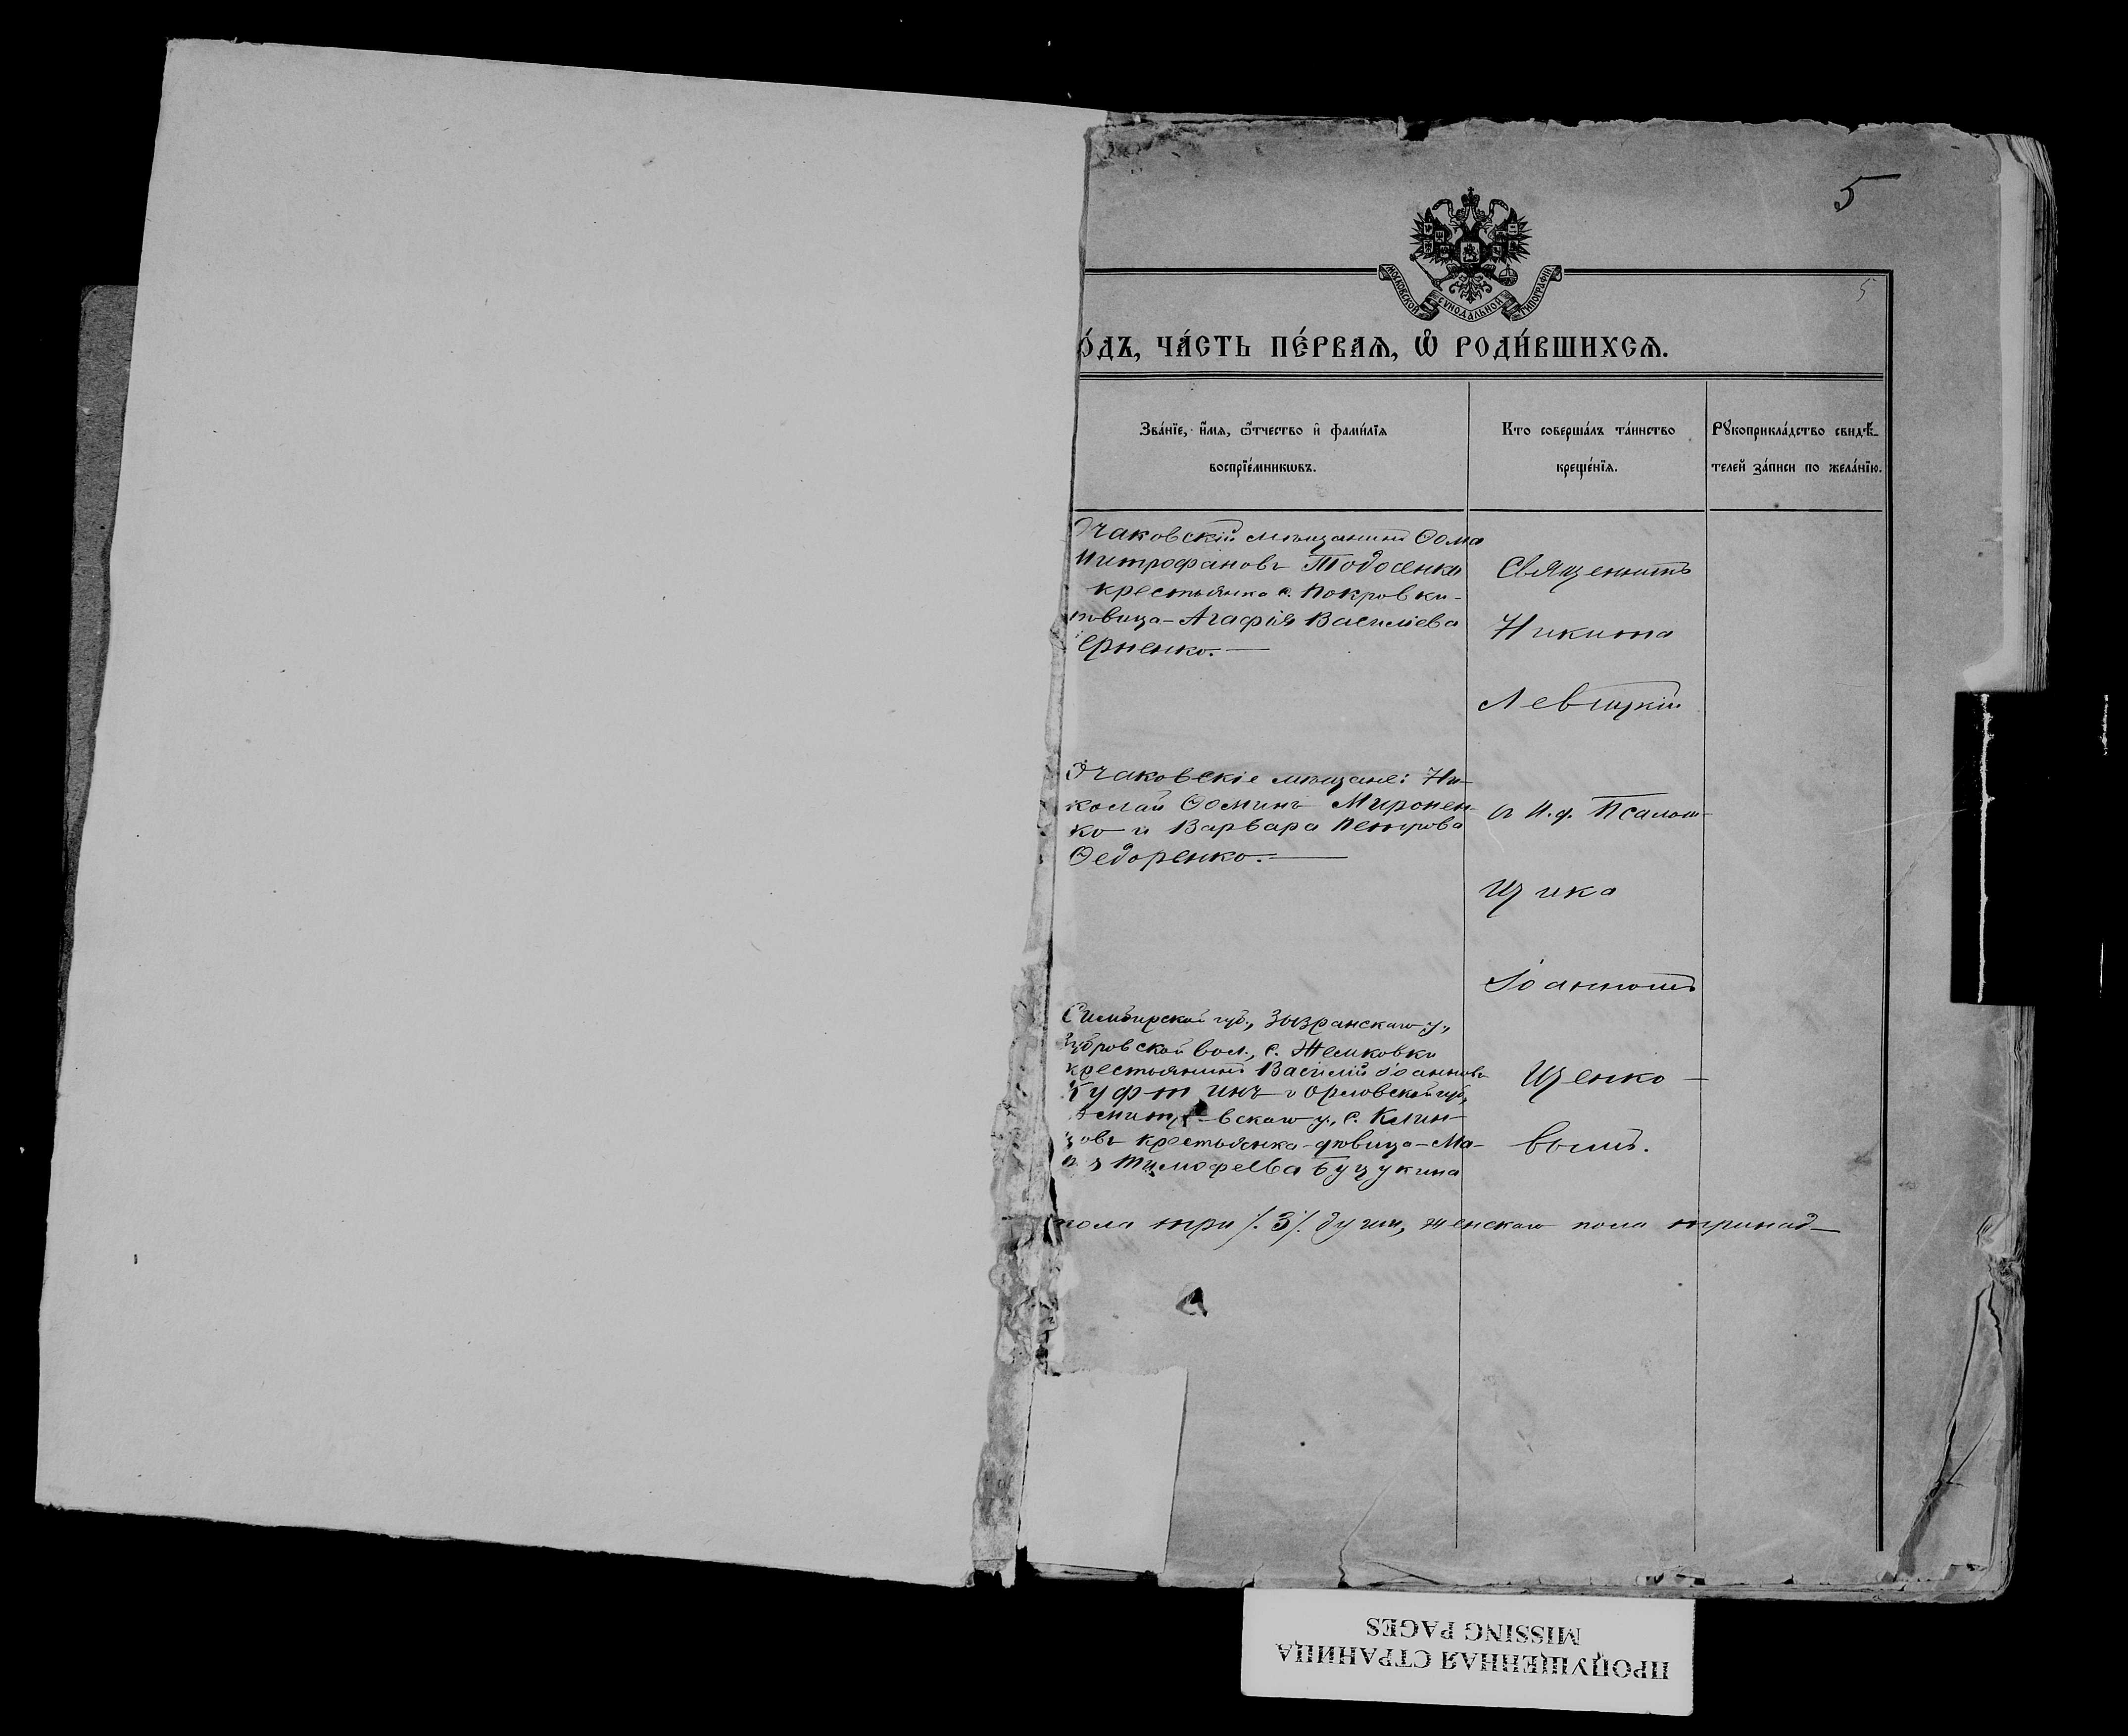 5
МОСКОВСКОЙ СѴНОДАЛЬНОЙ ТИПОГРАФІИ
5
о́дъ, ча́сть пе́рваѧ, ѡ҆ роди́вшихсѧ.
Зва́нїе, и҆́мѧ, ѻ҆́тчество и҆ фами́лїѧ
воспрїе́мникѡвъ.
Кто соверша́лъ та́инство
креще́нїѧ.
Рꙋкоприкла́дство свидѣ́-
телей за́писи по жела́нїю.
Очаковскій мѣщанинъ Ѳома
Митрофановъ Тодосенко
крестьянка с. Покровки-
вица-Агафія Василіева
ерненко.—
Священникъ
Никита
Левицкій
Очаковскіе мѣщане: Ни-
колай Ѳоминъ Миронен-
ко и Варвара Петрова
Ѳедоренко.—
съ И.д. Псалом-
щика
Іоанномъ
Щенко-
вымъ.
Симбирской губ., Сызранскаго у.,
ской вол., с. Жемковки
крестьянинъ Василій Іоанновъ
Куфтинъ и Орловской губ.,
вскаго у., с. Клин-
крестьянка-дѣвица-Ма-
Тимофеева Бузукина
пола три /.3/. души, женскаго пола тринад-
ПРОПУЩЕННАЯ СТРАНИЦА
MISSING PAGES